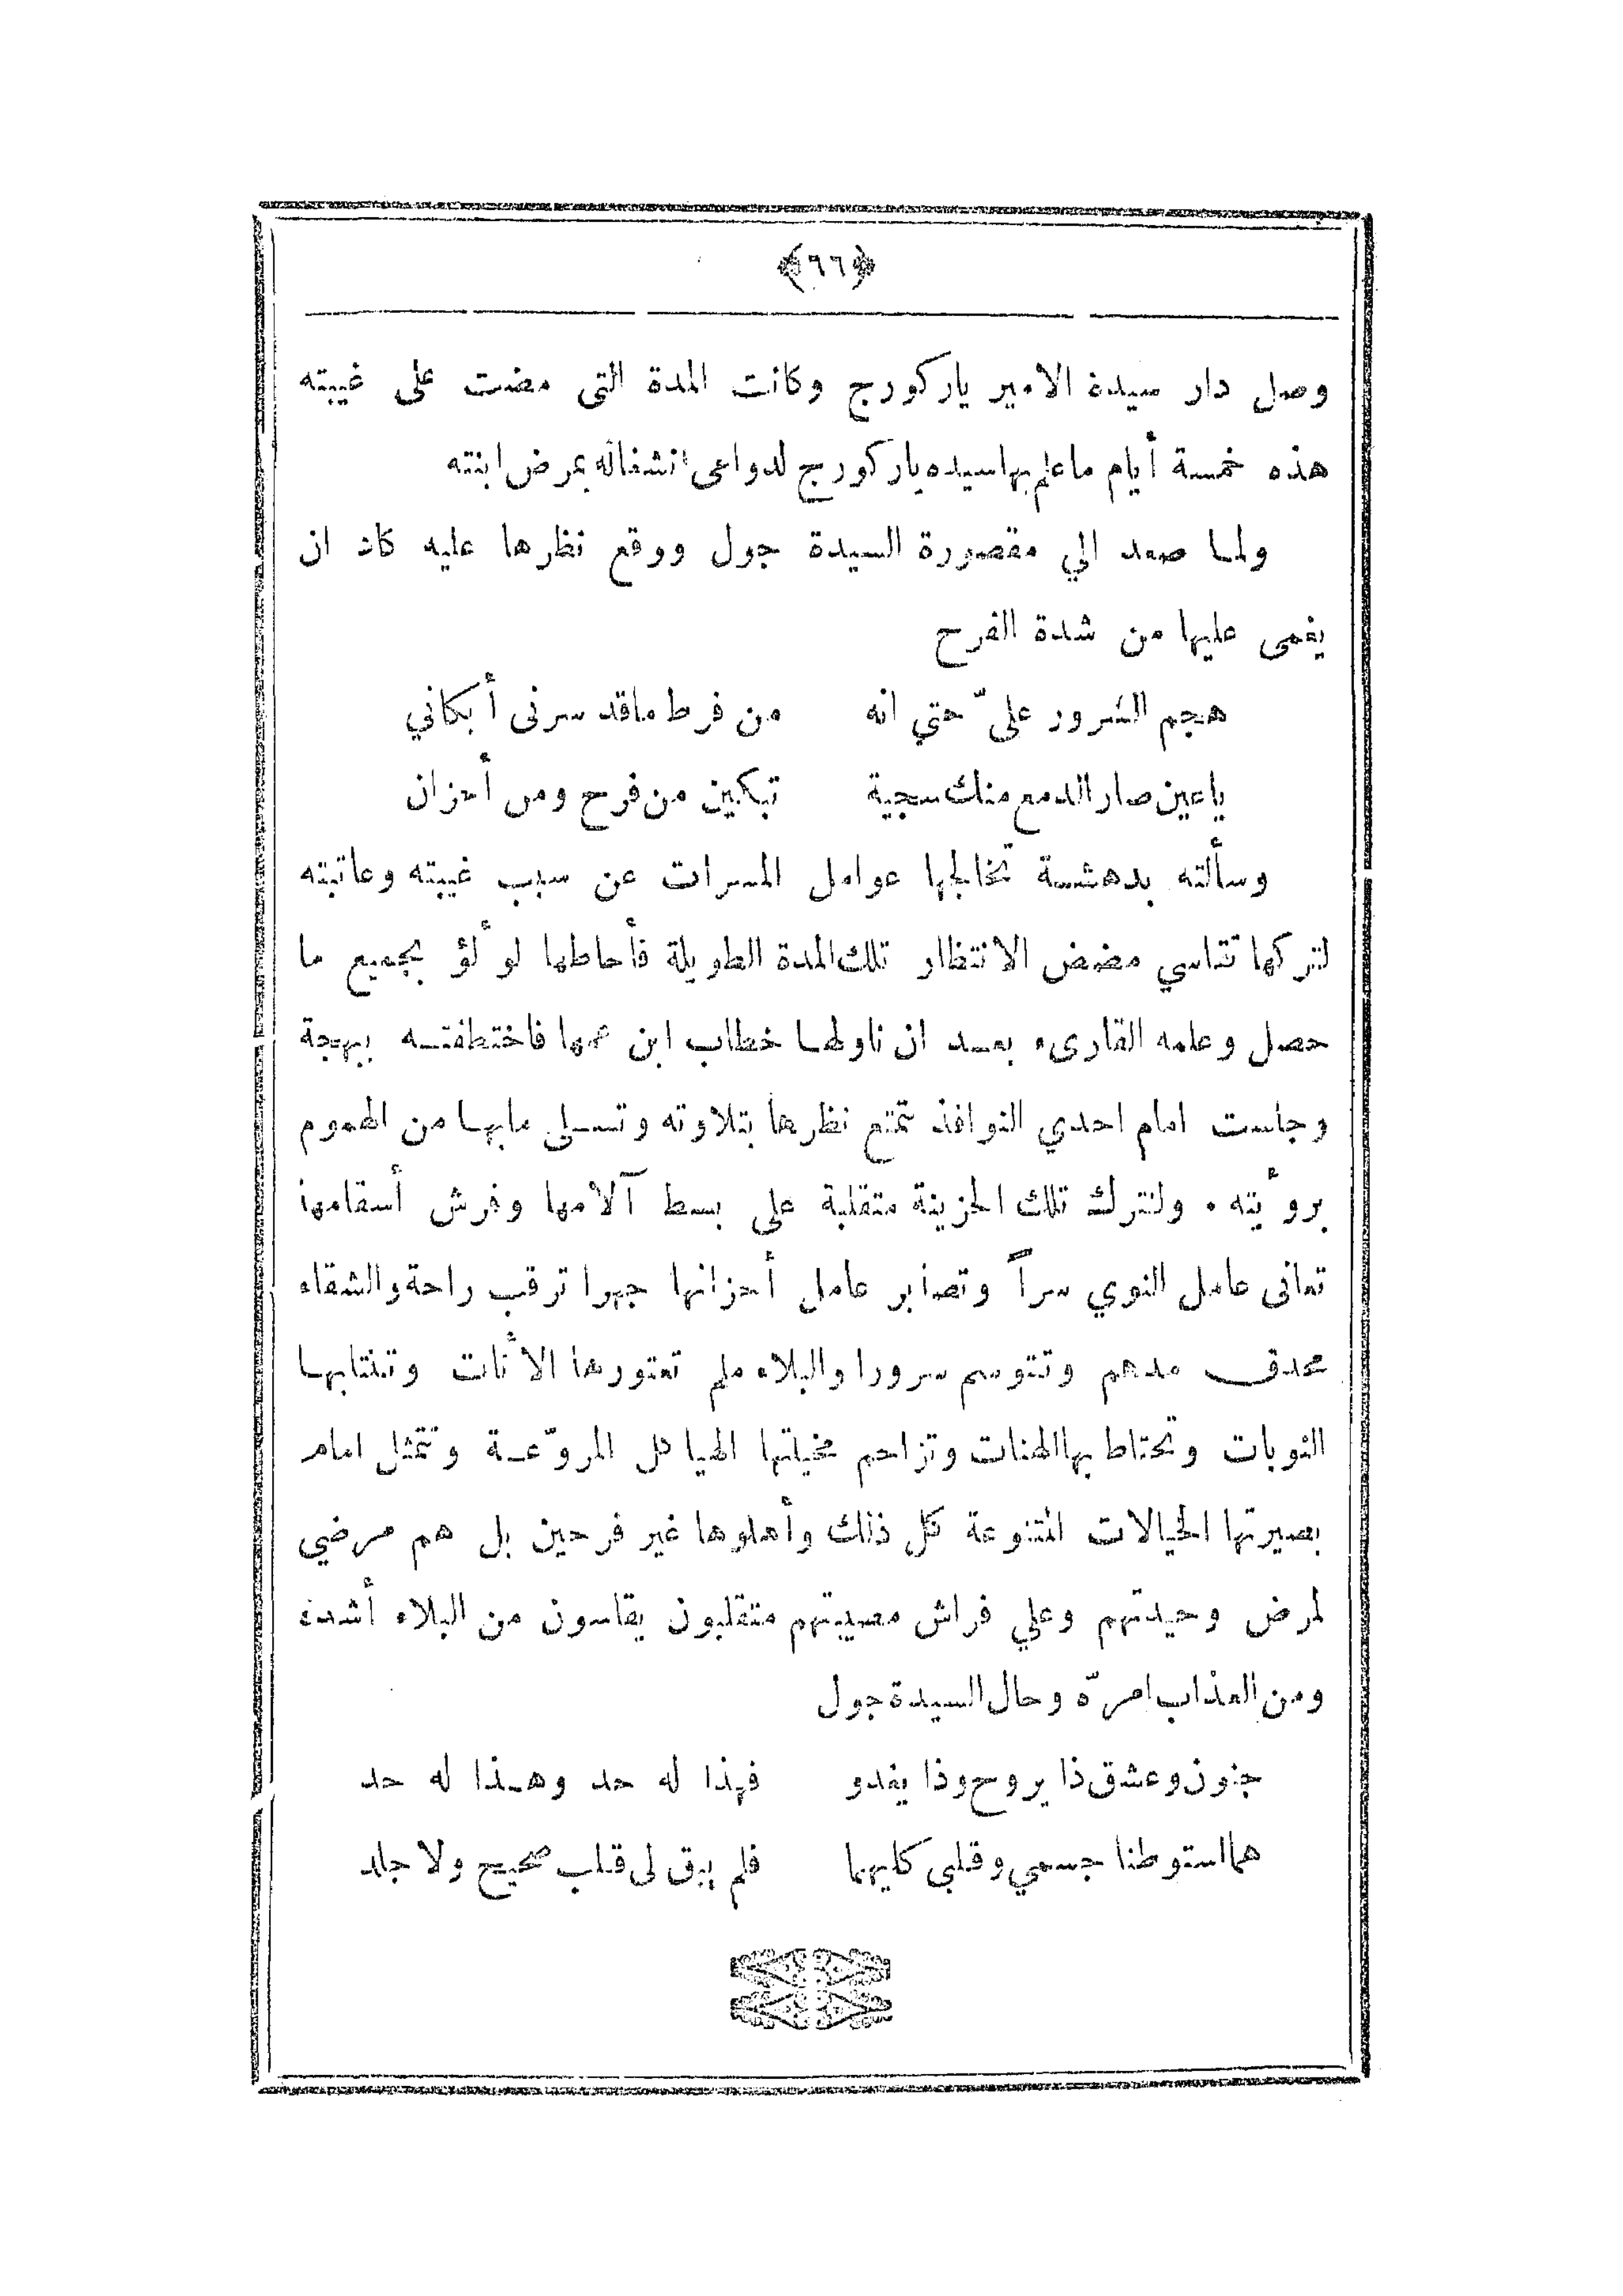 ﴿٦٦﴾
وصل دار سيده الامير ياركورج وكانت المدة التى مضت على غيبته
هذه خمسة أيام ماعلم بها سيده ياركورج لدواعى انشغاله بمرض ابنته
ولما صعد الي مقصورة السيدة جول ووقع نظرها عليه كاد ان
يغمى عليها من شدة الفرح
هجم السرور علىّ حتي انه من فرط ماقد سرنى أبكاني
ياعين صار الدمع منك سجية تبكين من فرح ومن أحزان
وسألته بدهشة تخالجها عوامل المسرات عن سبب غيبته وعاتبته
لتركها تقاسي مضض الانتظار تلك المدة الطويلة فأحاطها لؤلؤ بجميع ما
حصل وعلمه القارىء بعد ان ناولها خطاب ابن عمها فاختطفته ببهجة
وجلست امام احدي النوافذ تمتع نظرها بتلاوته وتسلى مابها من الهموم
برؤيته . ولنترك تلك الحزينة متقلبة على بسط آلامها وفرش أسقامها
تعانى عامل النوي سراً وتصابر عامل أحزانها جهرا ترقب راحة والشقاء
محدق مدهم وتتوسم سرورا والبلاء ملم تعتورها الأنات وتنتابها
النوبات وتحتاط بها الهنات وتزاحم مخيلتها الهياكل المروّعة وتتمثل امام
بصيرتها الخيالات المتنوعة كل ذلك وأهلوها غير فرحين بل هم مرضي
لمرض وحيدتهم وعلي فراش مصيبتهم متقلبون يقاسون من البلاء أشده
ومن العذاب امرّه وحال السيدة جول
جنون وعشق ذا يروح وذا يغدو فهذا له حد وهذا له حد
هما استوطنا جسمي وقلبى كليهما فلم يبق لى قلب صحيح ولا جلد